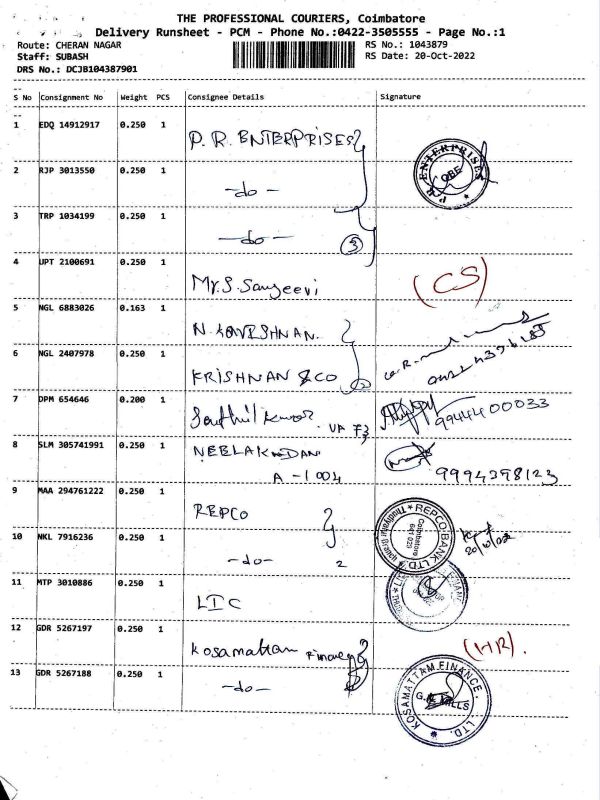 THE PROFESSIONAL COURIERS, Coimbatore
Delivery Runsheet - PCM - Phone No.:0422-3505555 - Page No.:1
Route: CHERAN NAGAR RS No.: 1043879
Staff: SUBASH RS Date: 20-Oct-2022
DRS No.: DCJB104387901
S No Consignment No Weight PCS Consignee Details Signature
1 EDQ 14912917 0.250 1 P. R. ENTERPRISES
P.R ENTERPRISES CBE
2 RJP 3013550 0.250 1 -do-
3 TRP 1034199 0.250 1 -do- 3
4 UPT 2100691 0.250 1 Mr.S.Sanjeevi (CS)
5 NGL 6883026 0.163 1
6 NGL 2407978 0.250 1 KRISHNAN & CO 2
7 DPM 654646 0.200 1 9944400033
8 SLM 305741991 0.250 1 A-1004 9994398123
9 MAA 294761222 0.250 1 REPCO
REPCO BANK LTD. Coimbatore 641 029
10 NKL 7916236 0.250 1 -do- 2
11 MTP 3010886 0.250 1 LIC
12 GDR 5267197 0.250 1 Kosamattam Finance (HR).
13 GDR 5267188 0.250 1 -do-
KOSAMATTAM FINANCE LTD. G.N. MILLS